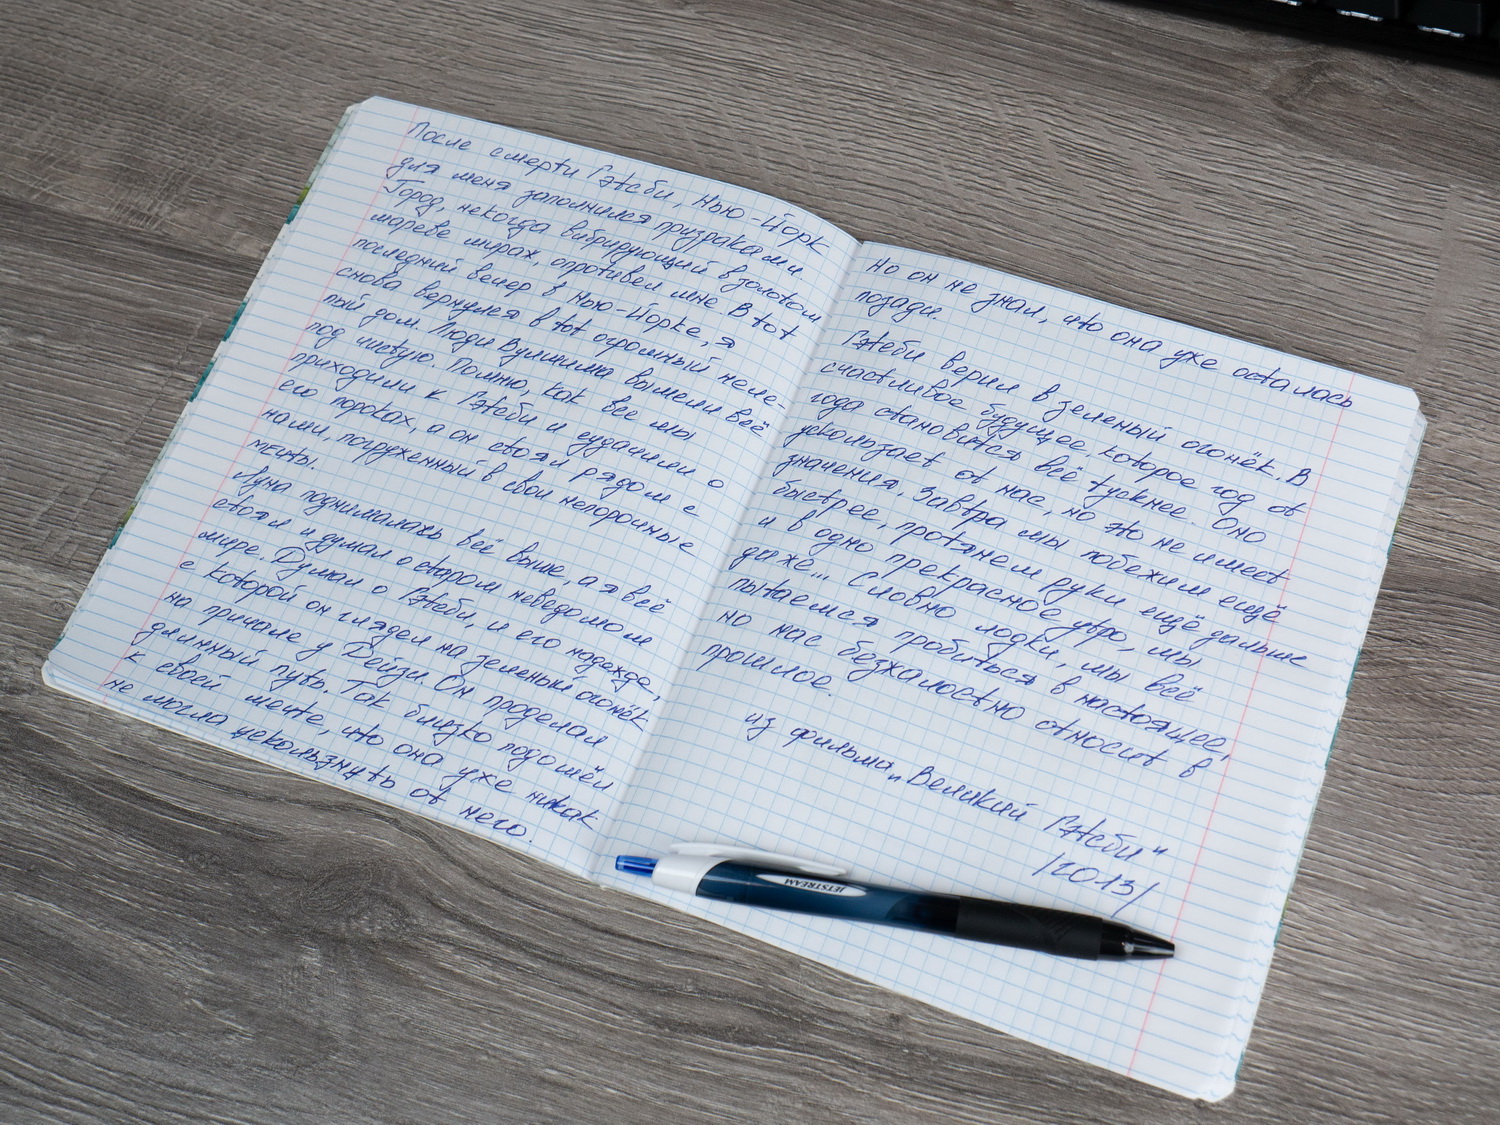 После смерти Гэтсби, Нью-Йорк
для меня заполнился призраками.
Город, некогда вибрирующий в золотом
мареве мирах, опротивел мне. В тот
последний вечер в Нью-Йорке, я
снова вернулся в тот огромный неле-
пый дом. Люди Вулшима вымели всё
под чистую. Помню, как все мы
приходили к Гэтсби и судачили о
его пороках, а он стоял рядом с
нами, погруженный в свои непорочные
мечты.
Луна поднималась всё выше, а я всё
стоял и думал о старом неведомом
мире. Думал о Гэтсби, и его надежде,
с которой он глядел на зеленый огонёк
на причале у Дейзи. Он проделал
длинный путь. Так близко подошёл
к своей мечте, что она уже никак
не могла ускользнуть от него.
Но он не знал, что она уже осталась
позади.
Гэтсби верил в зеленый огонёк. В
счастливое будущее, которое год от
года становится всё тускнее. Оно
ускользает от нас, но это не имеет
значения. Завтра мы побежим ещё
быстрее, протянем руки ещё дальше
и в одно прекрасное утро, мы
даже... Словно лодки, мы всё
пытаемся пробиться в настоящее,
но нас безжалостно относит в
прошлое.
из фильма „Великий Гэтсби"
/2013/
JETSTREAM